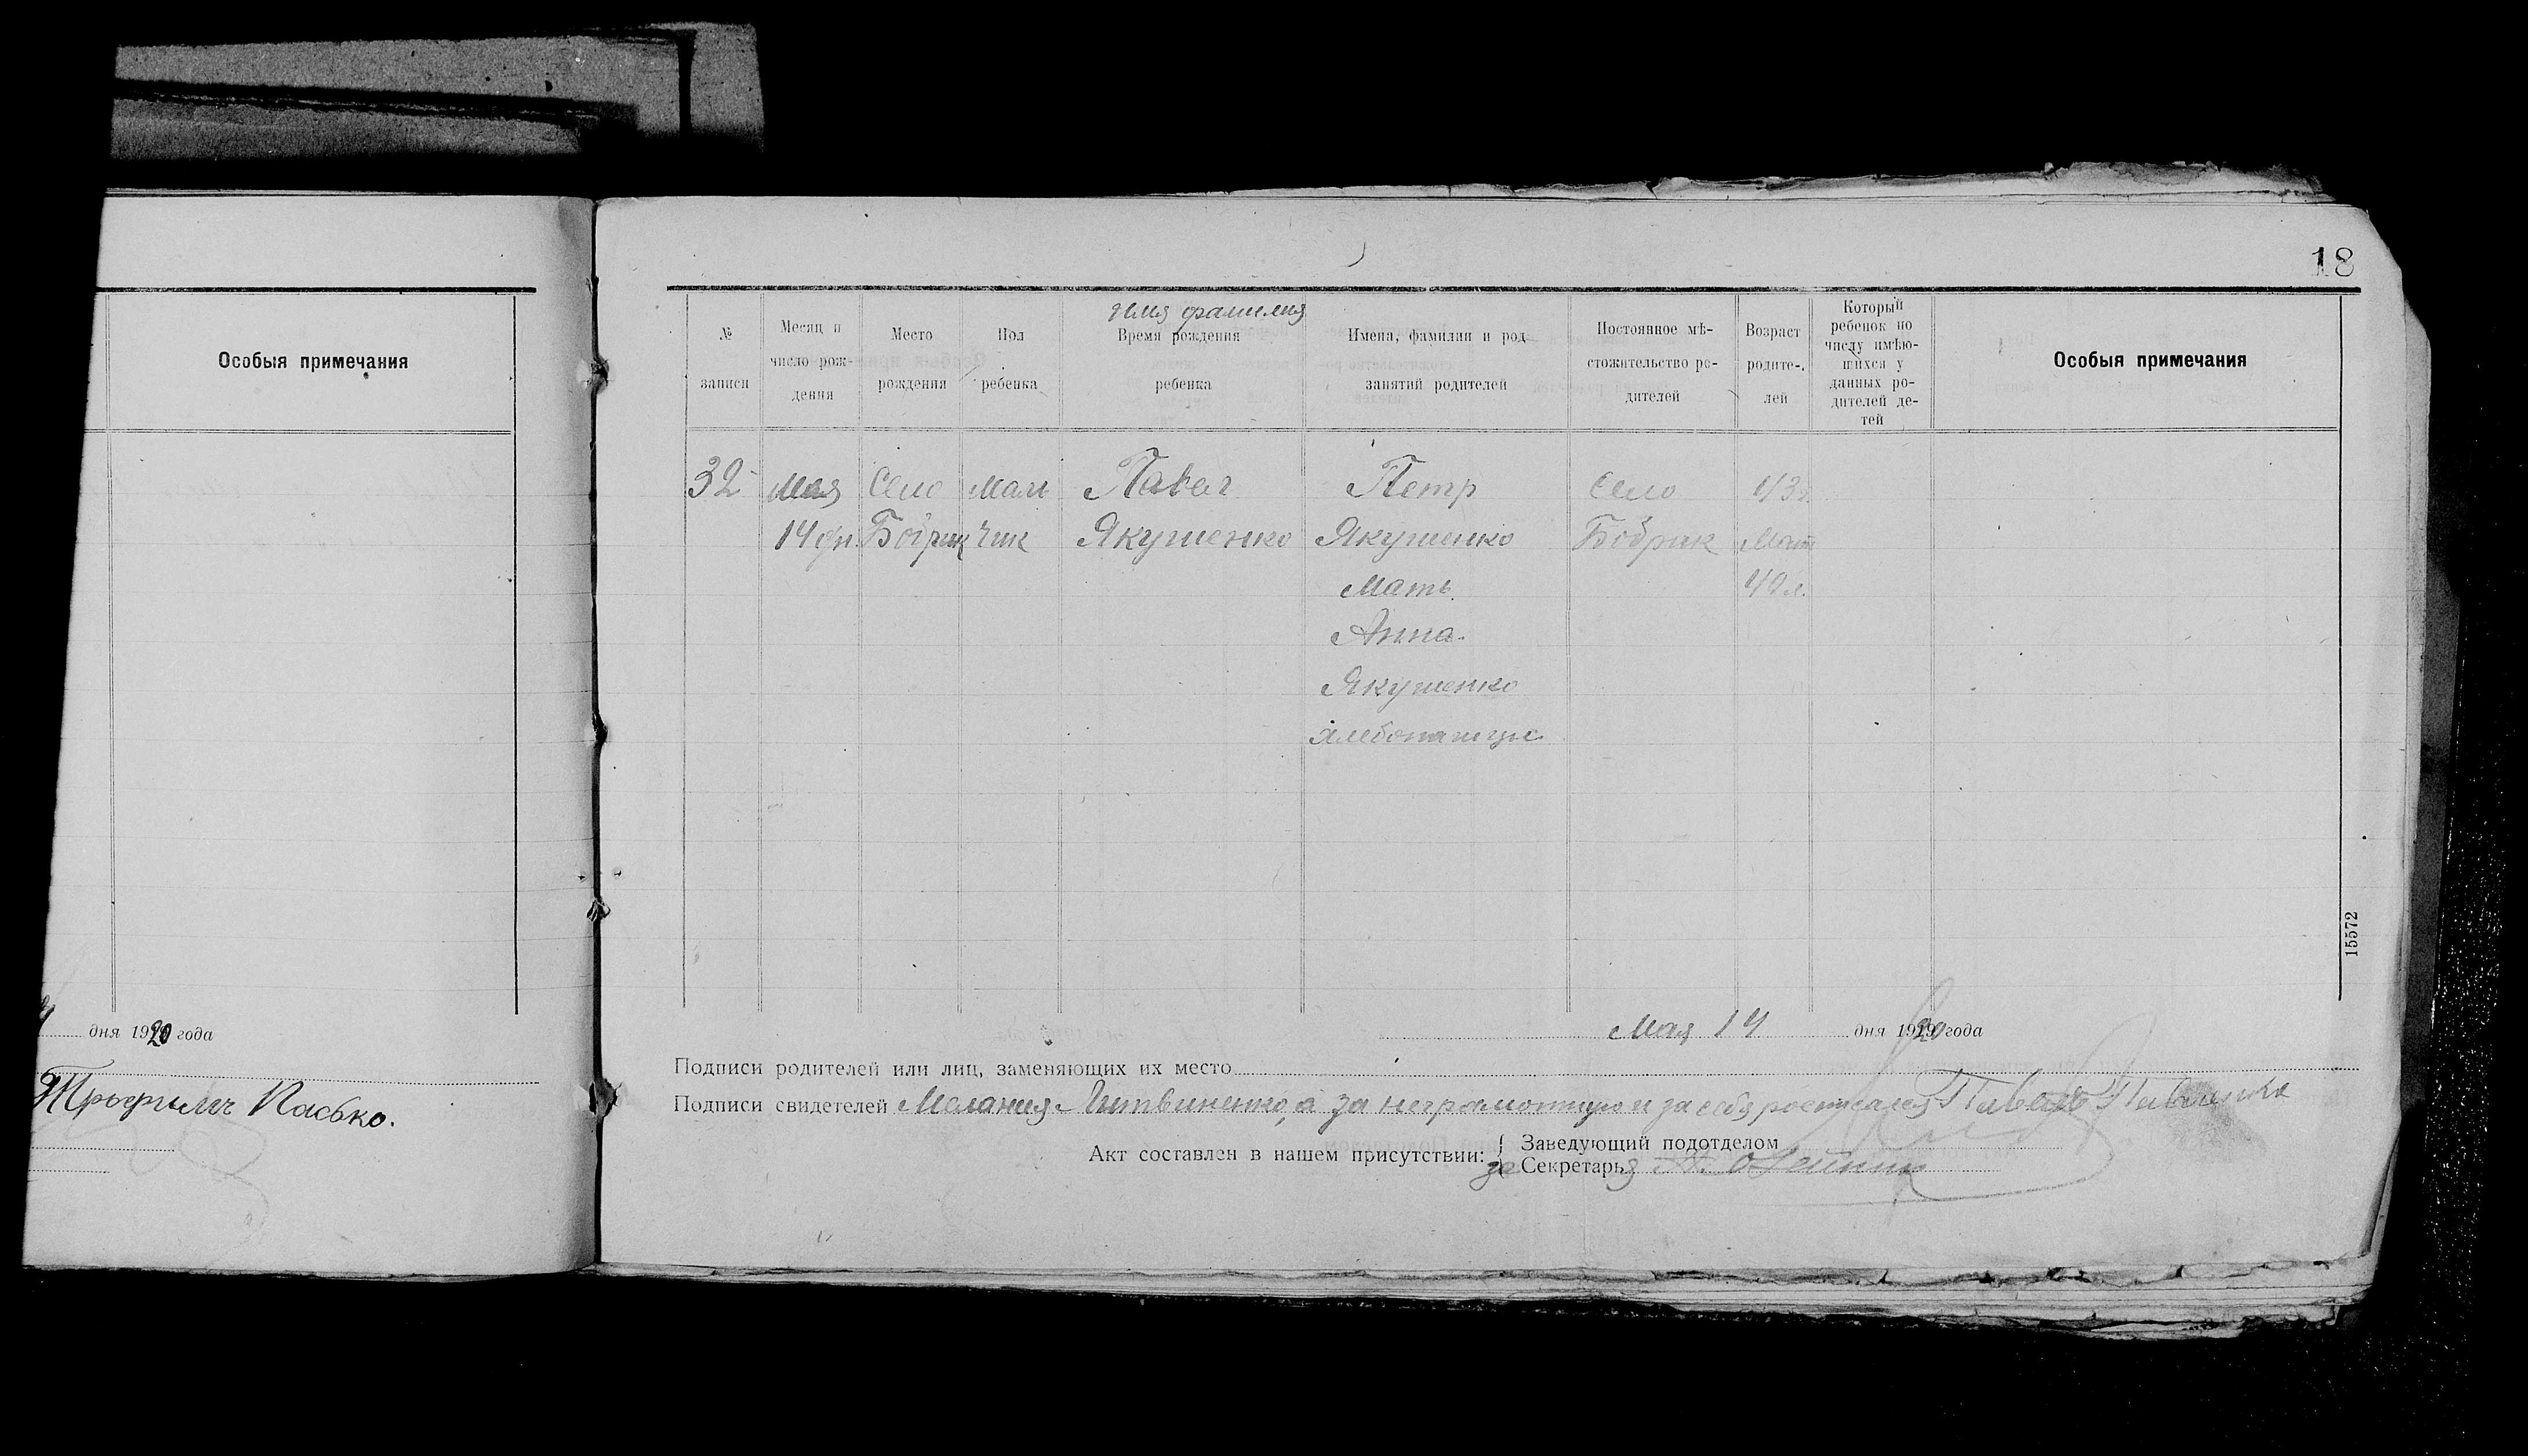 Особыя примечания
дня 1920 года
Трофимъ Пасько.
18
№ записи
Месяц и число рождения
Место рождения
Пол ребенка
Имя фамилия
Время рождения ребенка
Имена, фамилии и род занятий родителей
Постоянное мѣстожительство родителей
Возраст родителей
Который ребенок по числу имѣющихся у данных родителей детей
Особыя примечания
32 Мая Село Маль Павел Петр Село 43 г.
14 дн. Бобрик чик Якушенко Якушенко Бобрик Мат
Мать 40 л.
Анна
Якушенко
хлебопашцы
15572
Мая 14 дня 1920 года
Подписи родителей или лиц, заменяющих их место
Подписи свидетелей Мелания Литвиненко, а за неграмотную и за себя росписался Павел
Акт составлен в нашем присутствии: Заведующий подотделом
за Секретаря